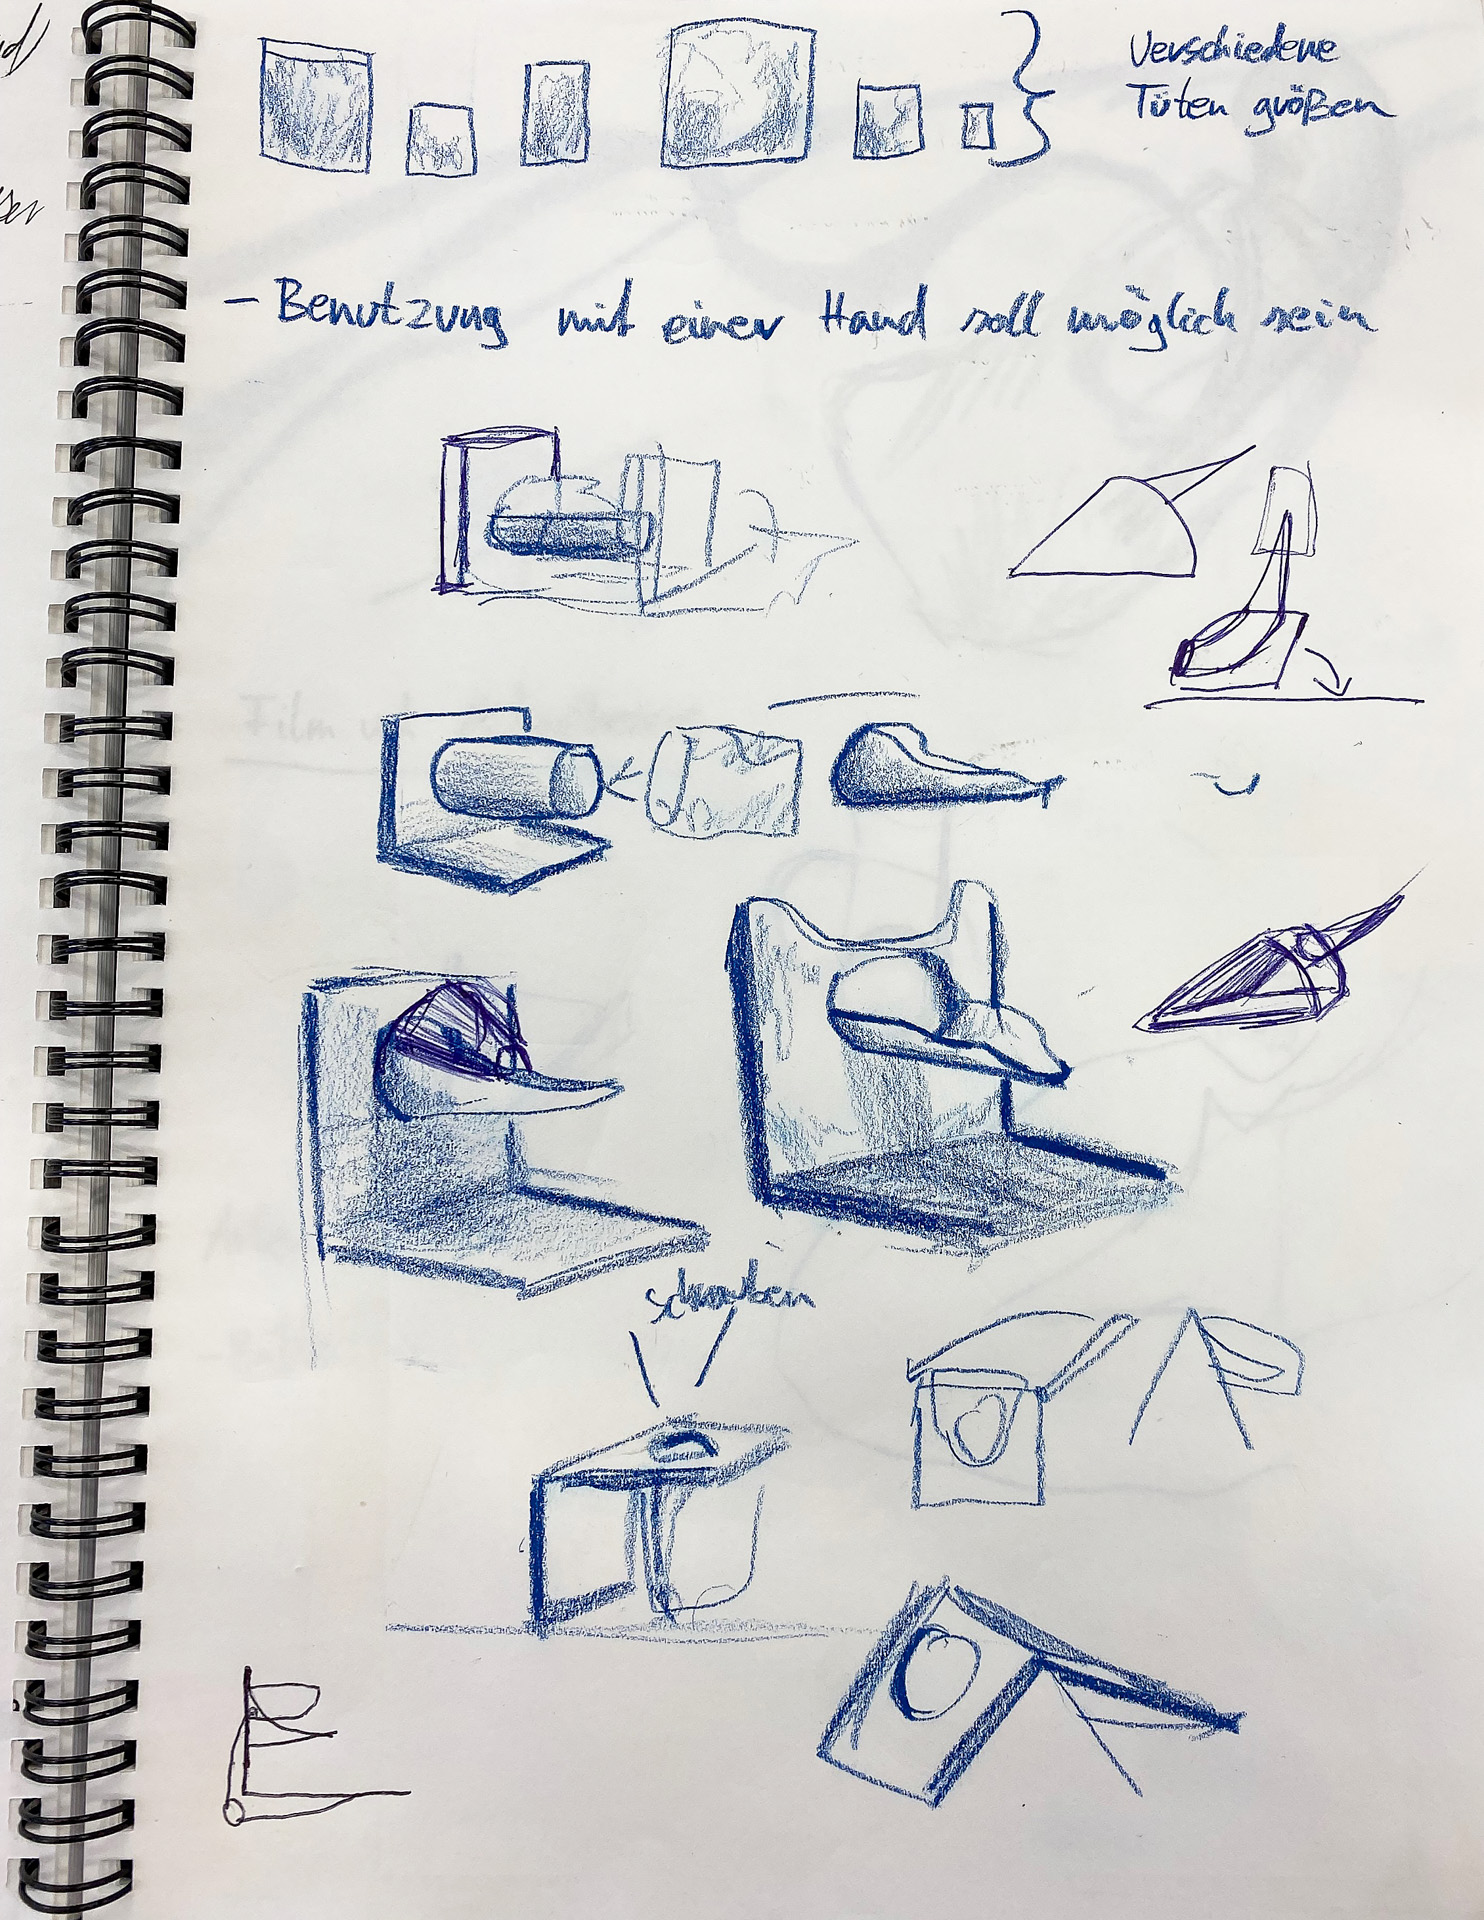 Verschiedene
Tüten größen
- Benutzung mit einer Hand soll möglich sein